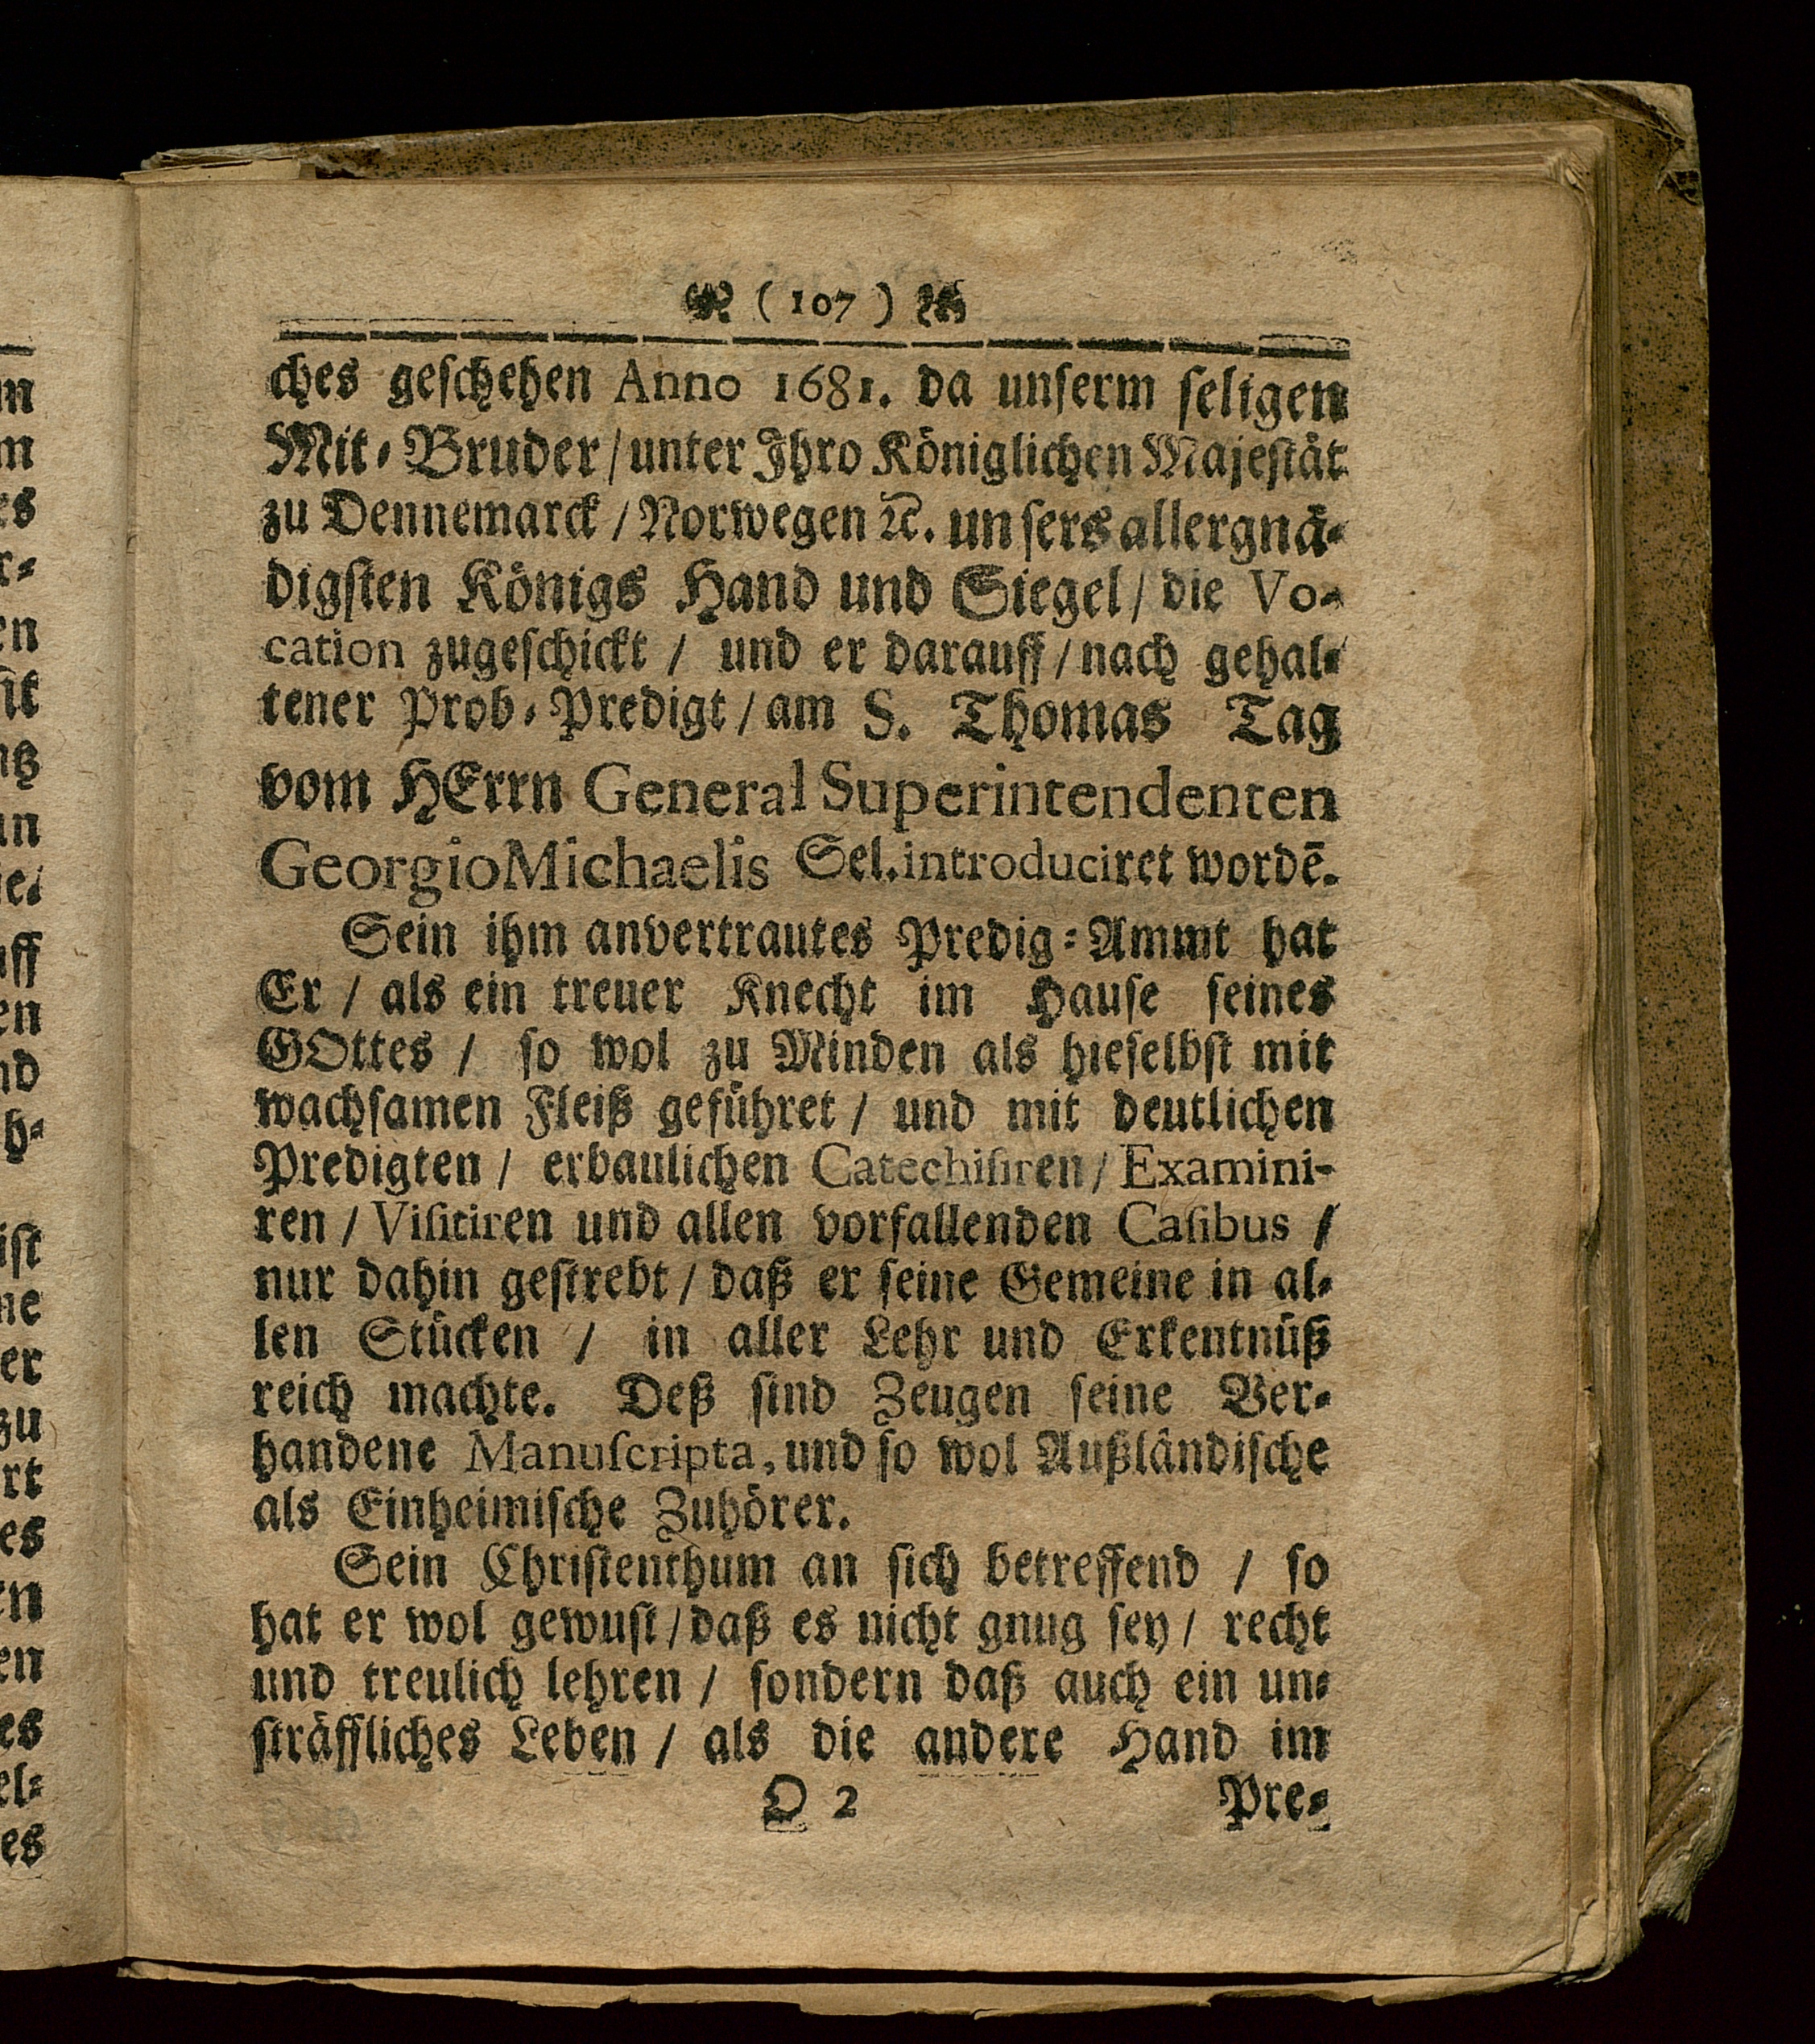 ( 107 )
ches geschehen Anno 1681. da unserm seligen
Mit-Bruder / unter Ihro Königlichen Majestät
zu Dennemarck / Norwegen ꝛc. unsers allergnä-
digsten Königs Hand und Siegel / die Vo-
cation zugeschickt / und er darauff / nach gehal-
tener Prob-Predigt / am S. Thomas Tag
vom HErrn General Superintendenten
Georgio Michaelis Sel. introduciret wordē.
Sein ihm anvertrautes Predig-Ammt hat
Er / als ein treuer Knecht im Hause seines
GOttes / so wol zu Minden als hieselbst mit
wachsamen Fleiß geführet / und mit deutlichen
Predigten / erbaulichen Catechisiren / Examini-
ren / Visitiren und allen vorfallenden Casibus /
nur dahin gestrebt / daß er seine Gemeine in al-
len Stücken / in aller Lehr und Erkentnüß
reich machte. Deß sind Zeugen seine Ver-
handene Manuscripta, und so wol Außländische
als Einheimische Zuhörer.
Sein Christenthum an sich betreffend / so
hat er wol gewust / daß es nicht gnug sey / recht
und treulich lehren / sondern daß auch ein un-
sträffliches Leben / als die andere Hand im
O 2 Pre-